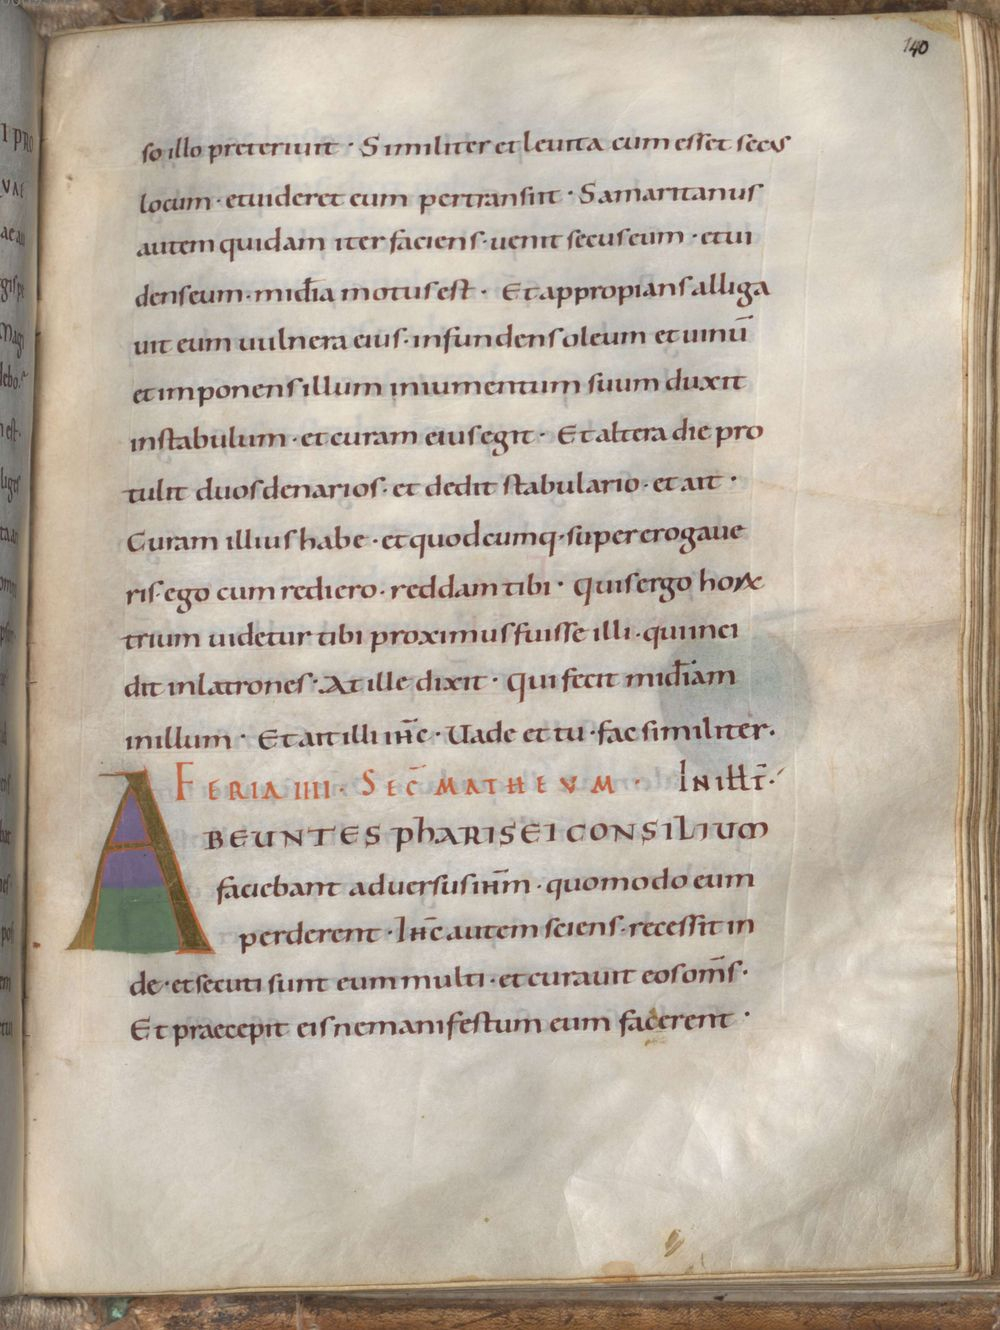 140
so illo preteriuit · Similiter et leuita cum esset secus
locum · et uideret eum pertransiit · Samaritanus
autem quidam iter faciens · uenit secus eum · et ui
dens eum · mīdia motus est · Et appropians alliga
uit eum uulnera eius · infundens oleum et uinū
et imponens illum iniumentum suum duxit
instabulum · et curam eius egit · Et altera die pro
tulit duos denarios · et dedit stabulario · et ait ·
Curam illius habe · et quodcumq· supererogaue
ris · ego cum rediero · reddam tibi · quis ergo horum
trium uidetur tibi proximus fuisse illi · qui inci
dit inlatrones · At ille dixit · qui fecit mīdiam
inillum · Et ait illi ihc̄ · Uade et tu · fac similiter ·
FERIA IIII · SEC̄ MATHEUM · IN ILL T̄ ·
ABEUNTES PHARISEI CONSILIUM
faciebant aduersus ihm̄ · quomodo eum
perderent · Ihc̄ autem sciens · recessit in
de · et secuti sunt eum multi · et curauit eos om̄s ·
Et praecepit eis ne manifestum eum facerent ·